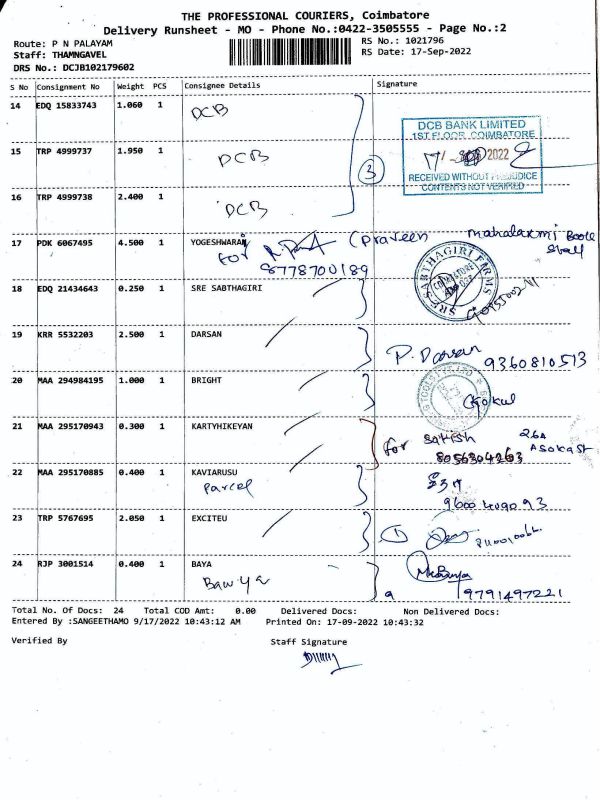 THE PROFESSIONAL COURIERS, Coimbatore
Delivery Runsheet - MO - Phone No.:0422-3505555 - Page No.:2
Route: P N PALAYAM
RS No.: 1021796
Staff: THAMNGAVEL
RS Date: 17-Sep-2022
DRS No.: DCJB102179602
S No Consignment No Weight PCS Consignee Details Signature
14 EDQ 15833743 1.060 1 DCB
DCB BANK LIMITED
1ST FLOOR, COIMBATORE
2022
RECEIVED WITHOUT PREJUDICE
CONTENTS NOT VERIFIED
15 TRP 4999737 1.950 1 DCB
3
16 TRP 4999738 2.400 1 DCB
17 PDK 6067495 4.500 1 YOGESHWARAN
for (praveen mahalaxmi Book stall
8778700189
18 EDQ 21434643 0.250 1 SRE SABTHAGIRI
SRE SABTHAGIRI FIRMS
COIMBATORE
19 KRR 5532203 2.500 1 DARSAN
P. Darsan 9360810513
20 MAA 294984195 1.000 1 BRIGHT
Gokul
21 MAA 295170943 0.300 1 KARTYHIKEYAN
for Satish 26A Asoka St
8056304263
22 MAA 295170885 0.400 1 KAVIARUSU
Parcel
23 TRP 5767695 2.050 1 EXCITEU
24 RJP 3001514 0.400 1 BAYA
Bawya
9791497221
Total No. Of Docs: 24 Total COD Amt: 0.00 Delivered Docs: Non Delivered Docs:
Entered By :SANGEETHAMO 9/17/2022 10:43:12 AM Printed On: 17-09-2022 10:43:32
Verified By Staff Signature